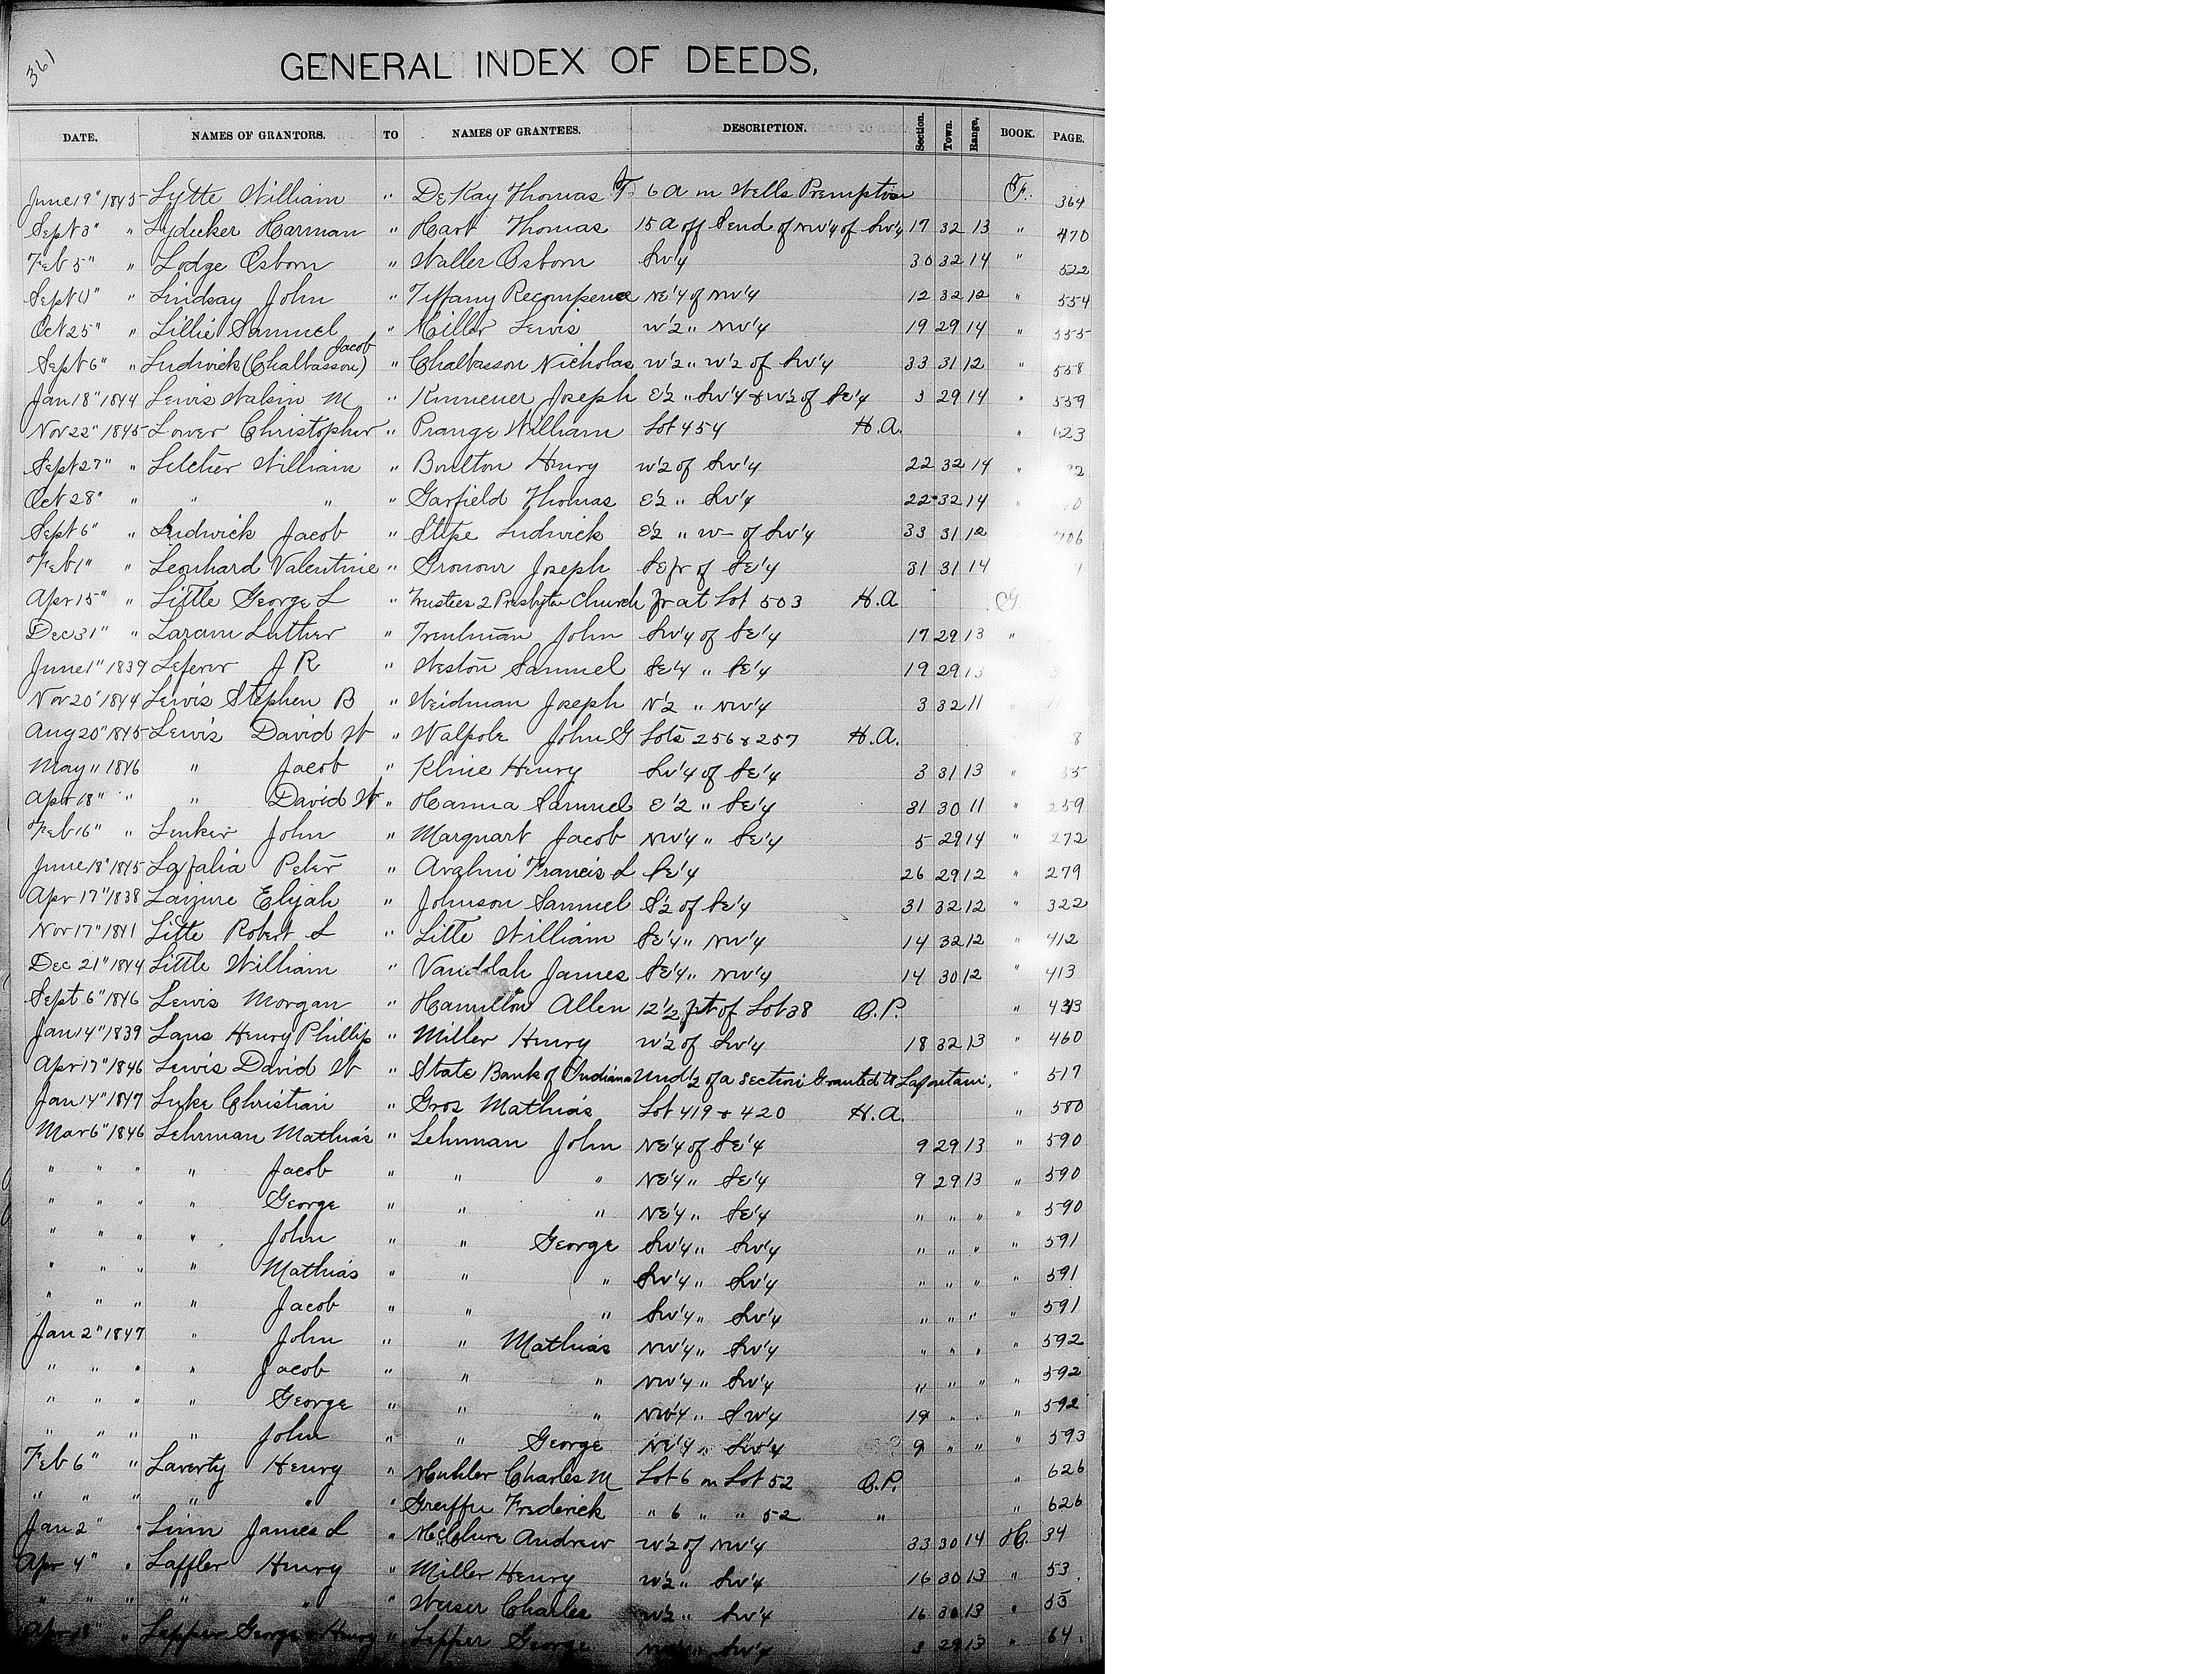 361
GENERAL INDEX OF DEEDS,
DATE. NAMES OF GRANTORS. TO NAMES OF GRANTEES. DESCRIPTION. Section. Town. Range, BOOK. PAGE.
June 19" 1845 Lytte William " DeKay Thomas T. 6 a in Wells Premption F. 364
Sept 3" " Lydecker Harman " Hart Thomas 15 a off S end of NW¼ of SW¼ 17 32 13 " 470
Feb 5" " Lodge Osborn " Waller Osborn SW¼ 30 32 14 " 522
Sept 11" " Lindsay John " Tiffany Recompence NE¼ of NW¼ 12 32 12 " 554
Oct 25" " Lillie Samuel " Miller Lewis W½ " NW¼ 19 29 14 " 555
Sept 6" " Ludwick (Chalbasson) Jacob " Chalbasson Nicholas W½ " W½ of SW¼ 33 31 12 " 558
Jan 18" 1844 Lewis M " Joseph E½ " SW¼ & W½ of SE¼ 3 29 14 " 559
Nov 22" 1845 Lower Christopher " Prange William Lot 454 H.A. " 623
Sept 27" " Letcher William " Boulton Henry W½ of SW¼ 22 32 14 "
Oct 28" " " " " Garfield Thomas E½ " SW¼ 22 32 14
Sept 6" " Ludwick Jacob " Ludwick E½ " W- of SW¼ 33 31 12 706
Feb 1" " Leonhard Valentine " Gronour Joseph SE fr of SE¼ 31 31 14
Apr 15" " Little George L " Trustees 2 Presbyter Church fr at Lot 503 H.A G.
Dec 31" " Laram Luther " Treulman John SW¼ of SE¼ 17 29 13 "
June 1" 1839 Lefever J R " Weston Samuel SE¼ " SE¼ 19 29 13
Nov 20" 1844 Lewis Stephen B " Weidman Joseph N½ " NW¼ 3 32 11
Aug 20" 1845 Lewis David W " Walpole John G Lots 256 & 257 H.A. 8
May 11 1846 " Jacob " Kline Henry SW¼ of SE¼ 3 31 13 "
Apr 18" " " David W " Hanna Samuel E½ " SE¼ 31 30 11 " 259
Feb 16" " Lenker John " Marquart Jacob NW¼ " SE¼ 5 29 14 " 272
June 18" 1845 Lafalia Peter " Francis L SE¼ 26 29 12 " 279
Apr 17" 1838 Elijah " Johnson Samuel S½ of SE¼ 31 32 12 " 322
Nov 17" 1841 Litte Robert L " Litte William SE¼ " NW¼ 14 32 12 " 412
Dec 21" 1844 Little William " Vandolah James SE¼ " NW¼ 14 30 12 " 413
Sept 6" 1846 Lewis Morgan " Hamilton Allen 12½ ft of Lot 38 O.P. " 433
Jan 14" 1839 Lans Henry Phillip " Miller Henry W½ of SW¼ 18 32 13 " 460
Apr 17" 1846 Lewis David W " State Bank of Indiana Und½ of a section Granted to Lafontain. " 517
Jan 14" 1847 Luke Christian " Gros Mathias Lot 419 & 420 H.A. " 580
Mar 6" 1846 Lehrman Mathias " Lehrman John NE¼ of SE¼ 9 29 13 " 590
" " " " Jacob " " " NE¼ " SE¼ 9 29 13 " 590
" " " " George " " " NE¼ " SE¼ " " " " 590
" " " " John " " George SW¼ " SW¼ " " " " 591
" " " " Mathias " " " SW¼ " SW¼ " " " " 591
" " " " Jacob " " " SW¼ " SW¼ " " " " 591
Jan 2" 1847 " John " " Mathias NW¼ " SW¼ " " " " 592
" " " " Jacob " " " NW¼ " SW¼ " " " " 592
" " " " George " " " NW¼ " SW¼ 19 " " " 592
" " " " John " " George NE¼ " SW¼ 9 " " " 593
Feb 6" " Laverty Henry " Muhler Charles M Lot 6 on Lot 52 O.P. " 626
" " " " " " Frederick " 6 " " 52 " " 626
Jan 2" " Linn James L " McClure Andrew W½ of NW¼ 33 30 14 H. 34
Apr 4" " Laffler Henry " Miller Henry W½ " SW¼ 16 30 13 " 53
" " " " " " Weiser Charles W½ " SW¼ 16 30 13 " 55
Apr 18" " Lepper George & Henry " Lepper George SW¼ 29 13 " 64